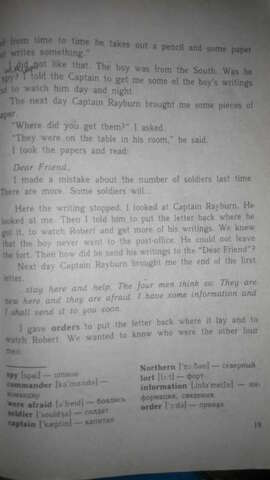 from time to time he takes out a pencil and some paper
writes something."
I did not like that. The boy was from the South. Was he
spy? I told the Captain to get me some of the boy's writings
to watch him day and night.
The next day Captain Rayburn brought me some pieces of
paper.
"Where did you get them?" I asked.
"They were on the table in his room," he said.
I took the papers and read:
Dear Friend,
I made a mistake about the number of soldiers last time
There are more. Some soldiers will...
Here the writing stopped. I looked at Captain Rayburn. He
looked at me. Then I told him to put the letter back where he
got it, to watch Robert and get more of his writings. We knew
that the boy never went to the post-office. He could not leave
the fort. Then how did he send his writings to the "Dear Friend"?
Next day Captain Rayburn brought me the end of the first
letter.
... stay here and help. The four men think so. They are
new here and they are afraid. I have some information and
I shall send it to you soon.
I gave orders to put the letter back where it lay and to
watch Robert. We wanted to know who were the other four
men.
spy [spaı] — шпион
commander — командир
were afraid — боялись
soldier — солдат
captain — капитан
Northern — северный
fort — форт
information — информация, сведения
order — приказ
19